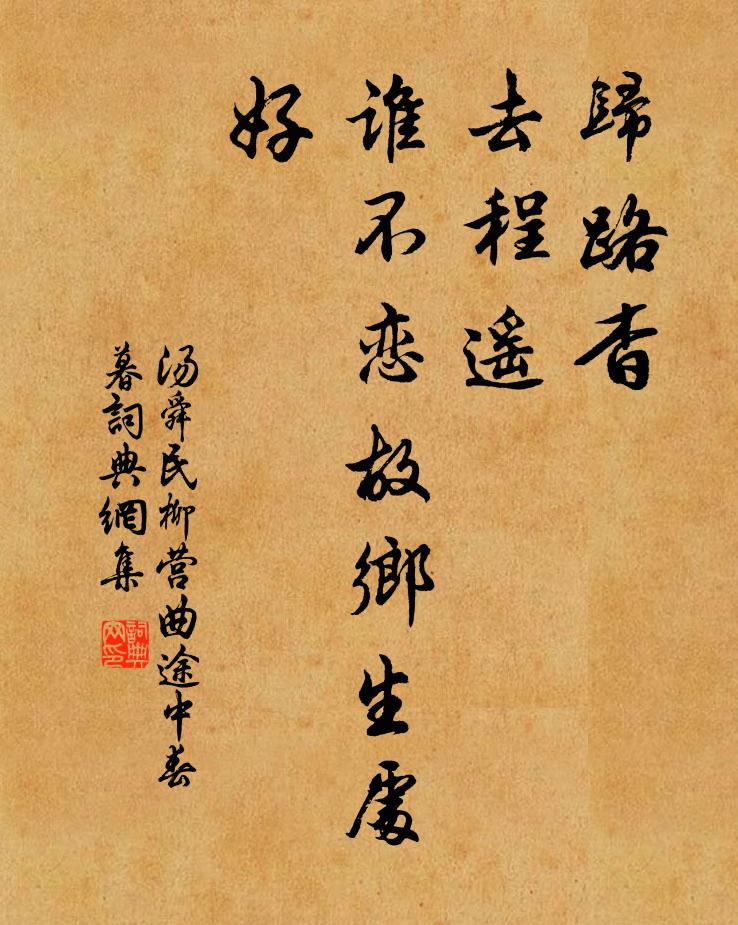 歸路杳
去程遥
誰不恋故鄉生處
好
汤舜民柳营曲途中春
暮詞典網集
詞典网印